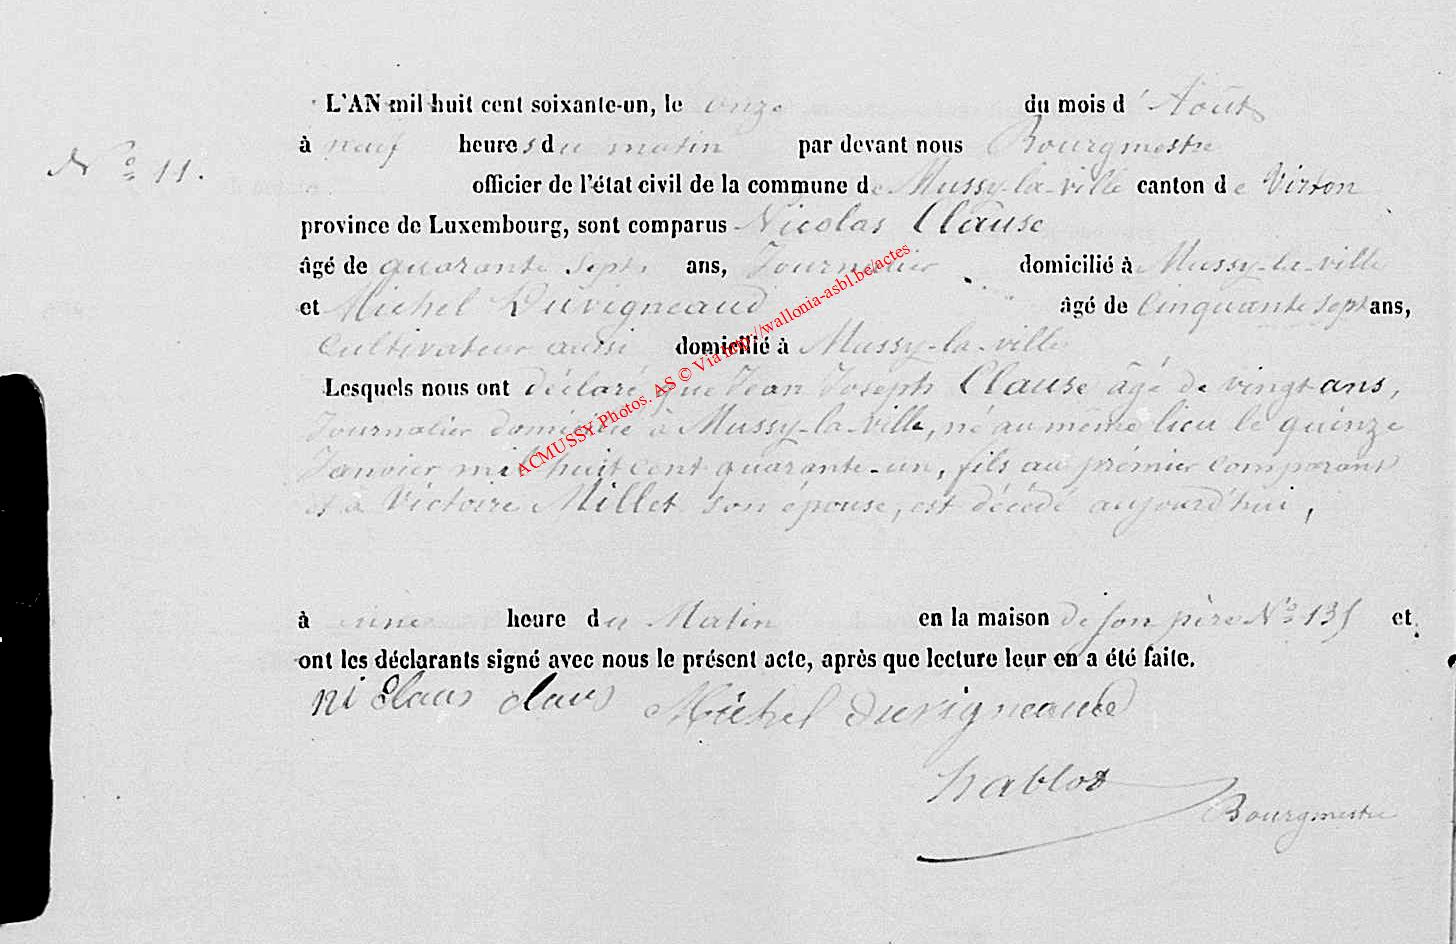 L'AN mil huit cent soixante-un, le onze du mois d'Août
à neuf heures du matin par devant nous Bourgmestre
N° 11.
officier de l'état civil de la commune de Mussy-la-ville canton de Virton
province de Luxembourg, sont comparus Nicolas Clause
âgé de quarante sept ans, Journalier domicilié à Mussy-la-ville
et Michel Duvigneaud âgé de Cinquante sept ans,
Cultivateur aussi domicilié à Mussy-la-ville
Lesquels nous ont déclaré que Jean Joseph Clause âgé de vingt ans,
Journalier domicilié à Mussy-la-ville, né au même lieu le quinze
Janvier mil huit cent quarante-un, fils au prémier comparant
et à Victoire Millet son épouse, est décédé aujourd'hui,
à une heure du Matin en la maison de son père N° 135 et
ont les déclarants signé avec nous le présent acte, après que lecture leur en a été faite.
ni Claus claus Michel duvigneaud
hablot
Bourgmestre
ACMUSSY Photos. AS © Via http://wallonia-asbl.be/actes